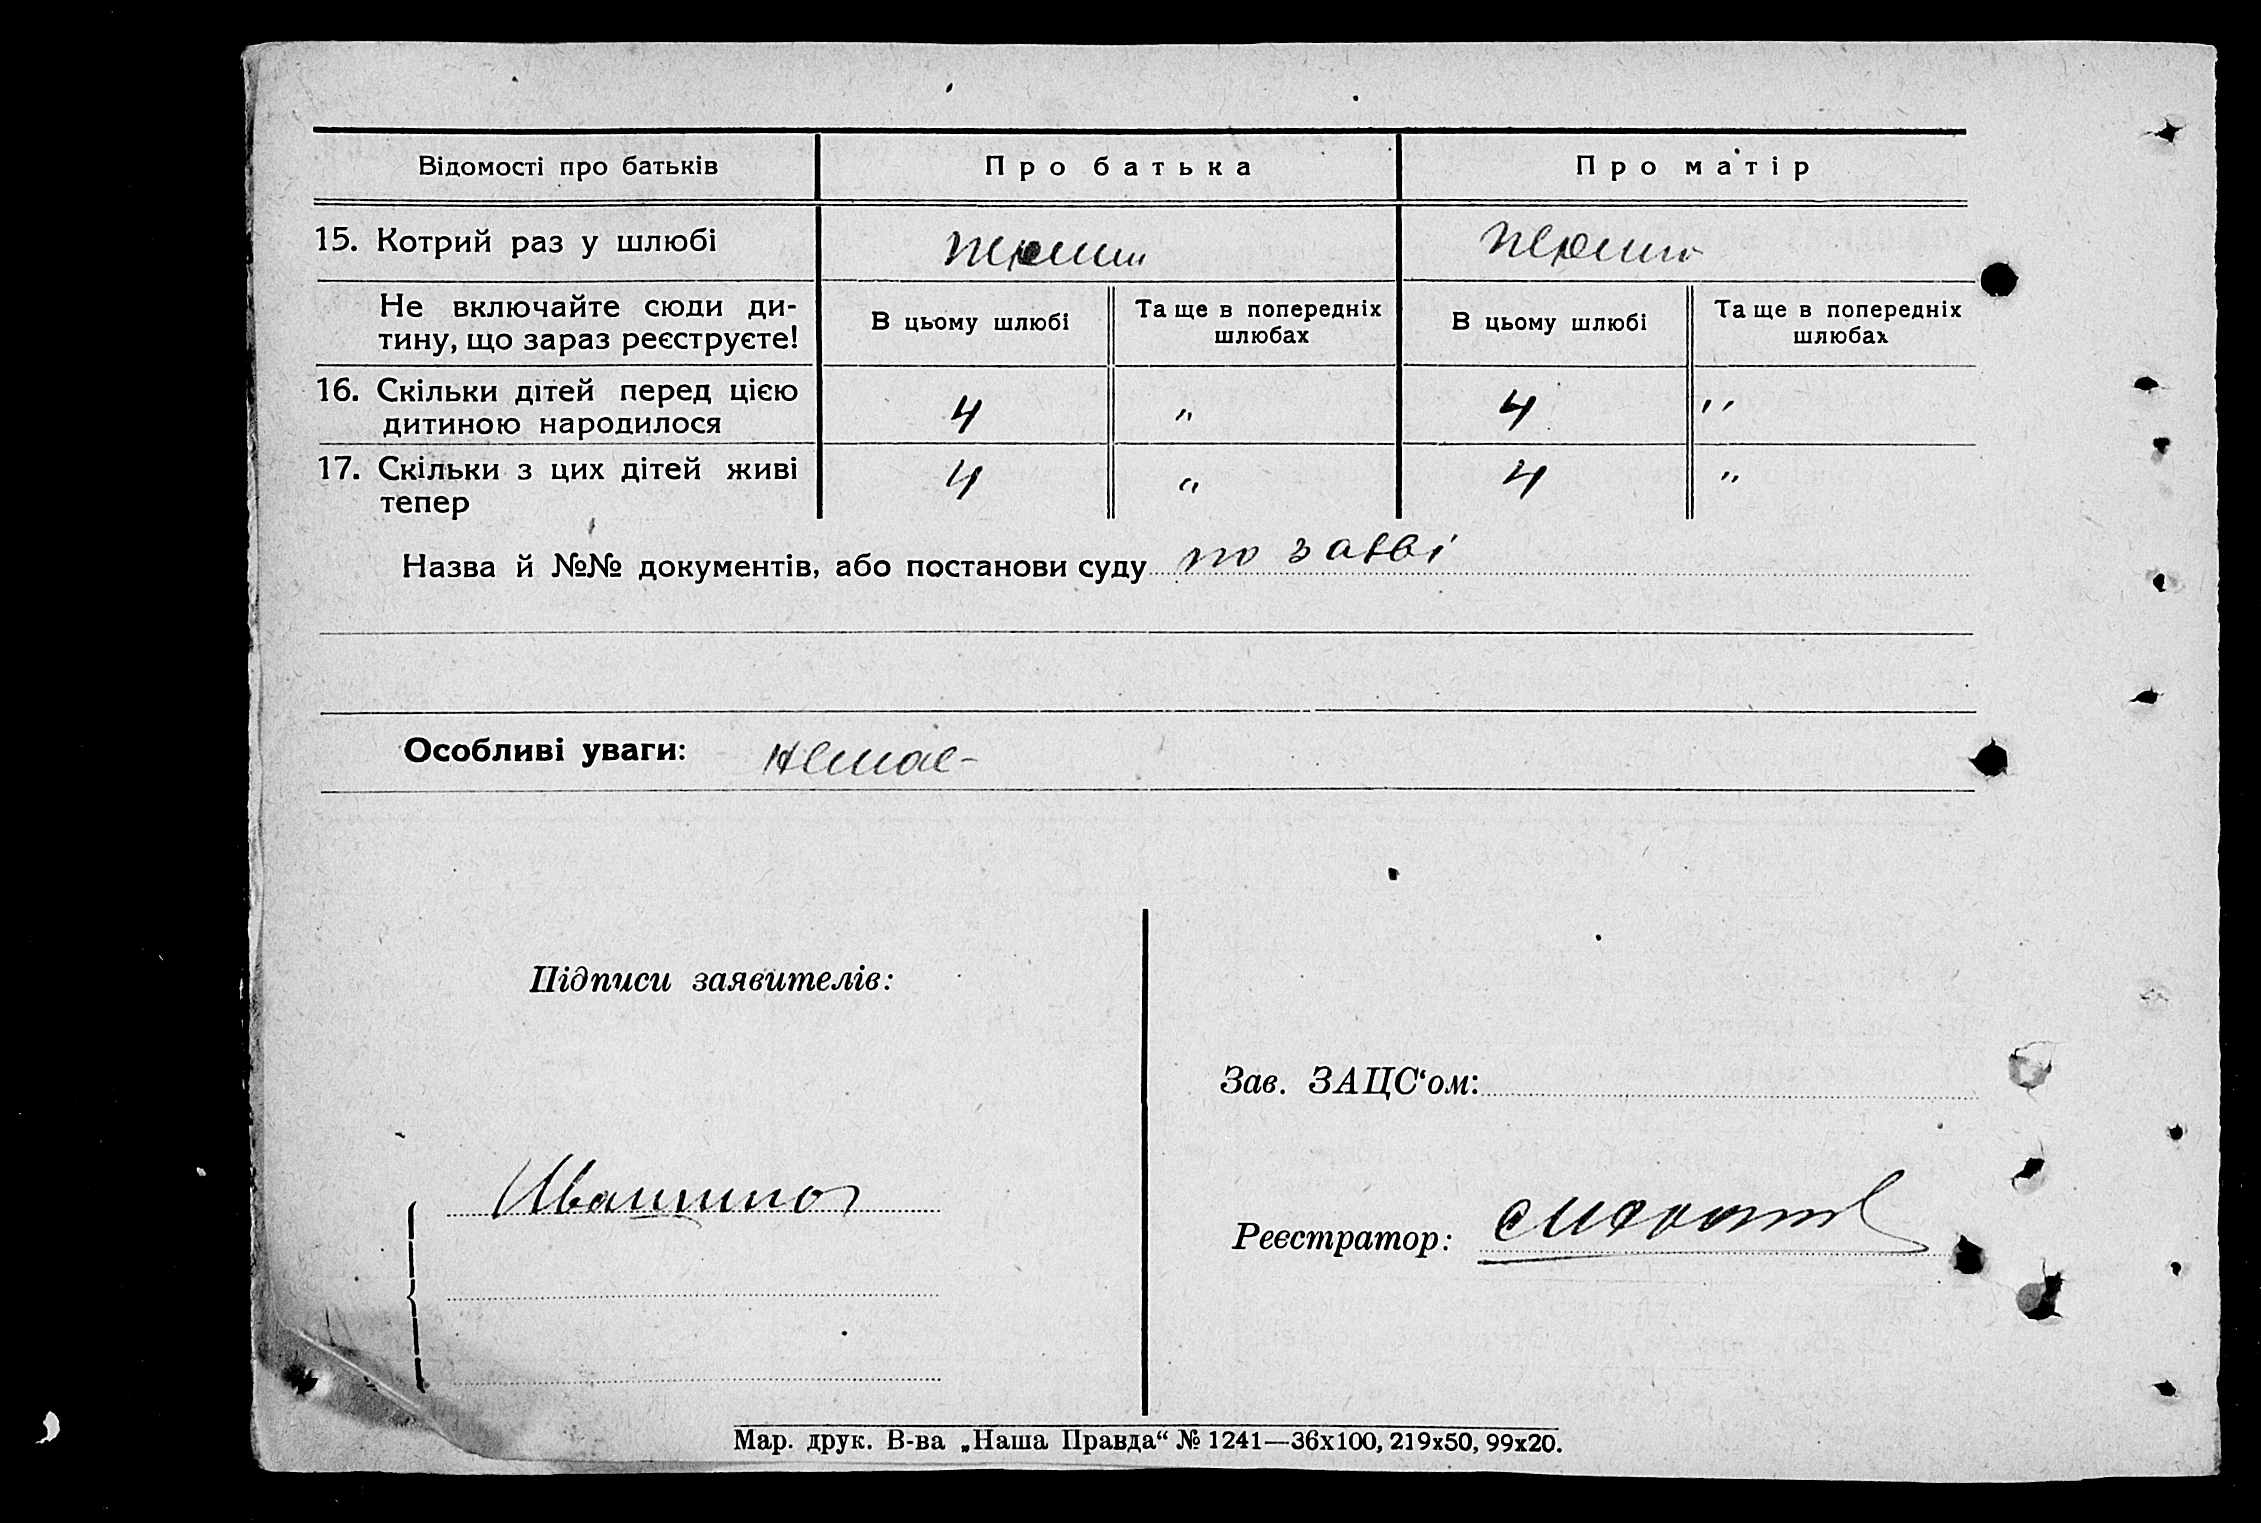 Відомості про батьків Про батька Про матір
15. Котрий раз у шлюбі перший перший
Не включайте сюди ди-
тину, що зараз реєструєте!
В цьому шлюбі
Та ще в попередніх
шлюбах
В цьому шлюбі
Та ще в попередніх
шлюбах
16. Скільки дітей перед цією
дитиною народилося
4 " 4 "
17. Скільки з цих дітей живі
тепер
4 " 4 "
Назва й №№ документів, або постанови суду по заяві
Особливі уваги: немає
Підписи заявителів:
Зав. ЗАЦС'ом:
Реєстратор:
Мар. друк. В-ва „Наша Правда“ № 1241—36х100, 219х50, 99х20.